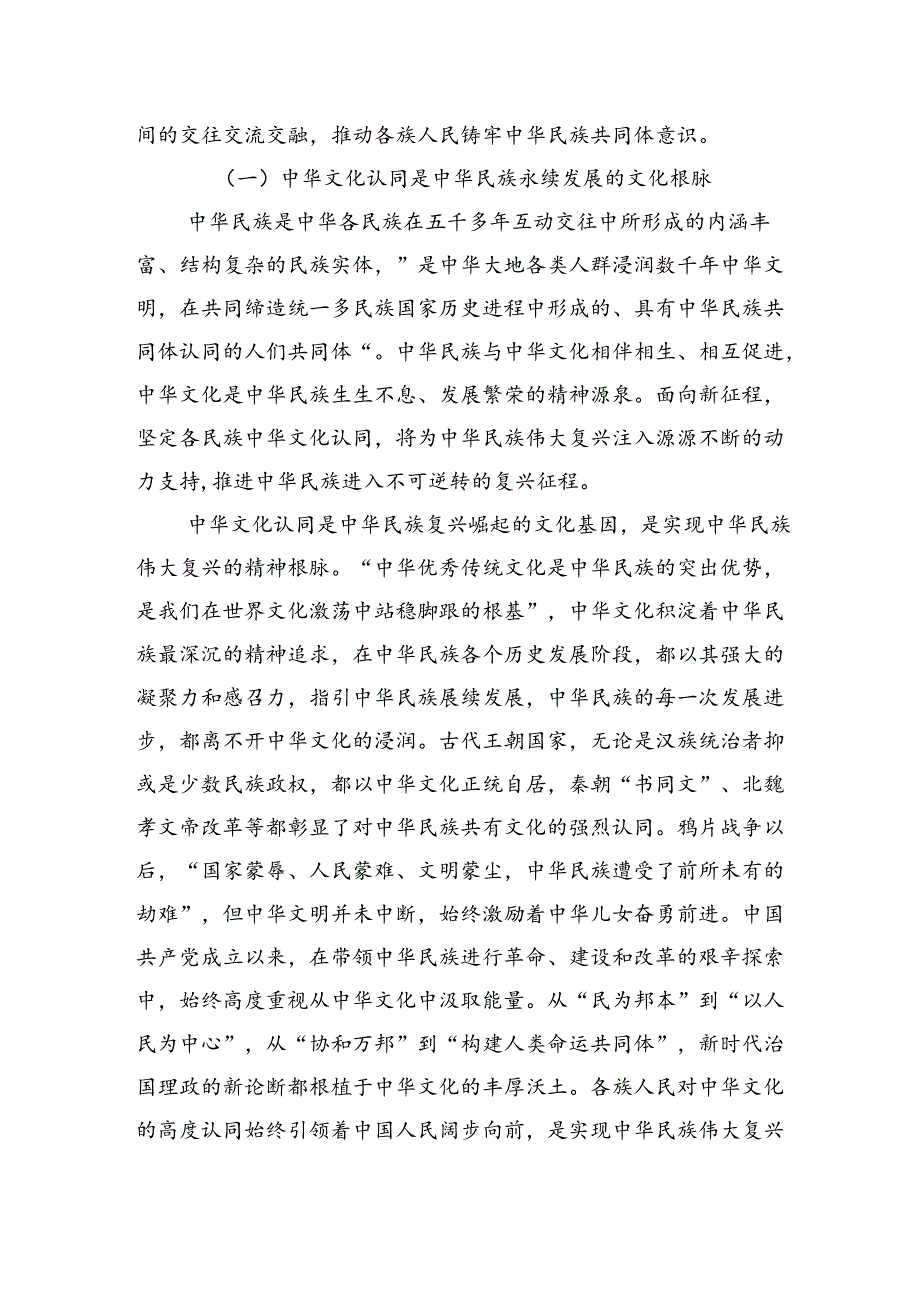 间的交往交流交融，推动各族人民铸牢中华民族共同体意识。
（一）中华文化认同是中华民族永续发展的文化根脉
中华民族是中华各民族在五千多年互动交往中所形成的内涵丰
富、结构复杂的民族实体，”是中华大地各类人群浸润数千年中华文
明，在共同缔造统一多民族国家历史进程中形成的、具有中华民族共
同体认同的人们共同体“。中华民族与中华文化相伴相生、相互促进，
中华文化是中华民族生生不息、发展繁荣的精神源泉。面向新征程，
坚定各民族中华文化认同，将为中华民族伟大复兴注入源源不断的动
力支持,推进中华民族进入不可逆转的复兴征程。
中华文化认同是中华民族复兴崛起的文化基因，是实现中华民族
伟大复兴的精神根脉。“中华优秀传统文化是中华民族的突出优势，
是我们在世界文化激荡中站稳脚跟的根基”，中华文化积淀着中华民
族最深沉的精神追求，在中华民族各个历史发展阶段，都以其强大的
凝聚力和感召力，指引中华民族展续发展，中华民族的每一次发展进
步，都离不开中华文化的浸润。古代王朝国家，无论是汉族统治者抑
或是少数民族政权，都以中华文化正统自居，秦朝“书同文”、北魏
孝文帝改革等都彰显了对中华民族共有文化的强烈认同。鸦片战争以
后，“国家蒙辱、人民蒙难、文明蒙尘，中华民族遭受了前所未有的
劫难”，但中华文明并未中断，始终激励着中华儿女奋勇前进。中国
共产党成立以来，在带领中华民族进行革命、建设和改革的艰辛探索
中，始终高度重视从中华文化中汲取能量。从“民为邦本”到“以人
民为中心”，从“协和万邦”到“构建人类命运共同体”，新时代治
国理政的新论断都根植于中华文化的丰厚沃土。各族人民对中华文化
的高度认同始终引领着中国人民阔步向前，是实现中华民族伟大复兴